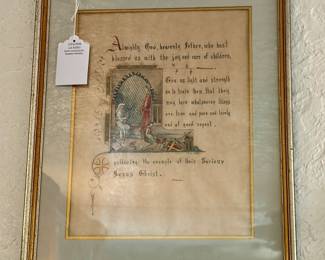 Almighty God, heavenly Father, who hast
blessed us with the joy and care of children,
Give us light and strength
so to train them, that they
may love whatsoever things
are true and pure and lovely
and of good report,
following the example of their Saviour
Jesus Christ.